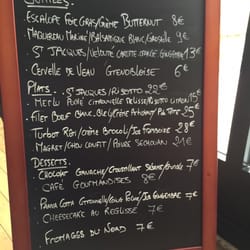 ENTRÉES
ESCALOPE FOIE GRAS/CRÈME BUTTERNUT 8€
MAQUEREAU MARINÉ/BALSAMIQUE BLANC/ 9€
ST JACQUES/VELOUTÉ CAROTTE ORANGE GINGEMBRE 13€
CERVELLE DE VEAU GRENOBLOISE 6€
PLATS
ST JACQUES/RISOTTO 22€
MERLU POÊLÉ CITRONNELLE RISOTTO 15€
FILET BOEUF BLANC BLEU/ 25€
TURBOT RÔTI/CRÈME BROCOLI/JUS FRAMBOISE 28€
MAGRET/CHOU CONFIT/POIVRE SECHOUAN 21€
DESSERTS
CHOCOLAT GANACHE/CROUSTILLANT SÉSAME/ 7€
CAFÉ GOURMANDISES 8€
PANNA COTTA CITRONNELLE/COULIS POIRE/JUS GINGEMBRE 7€
CHEESECAKE AU RÉGLISSE 7€
FROMAGES DU NORD 7€